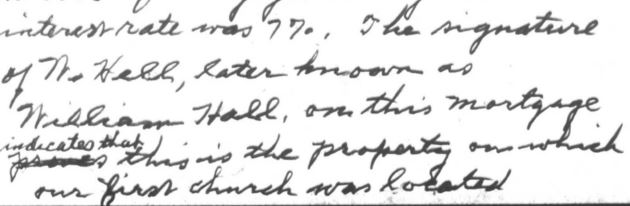 interest rate was 7%. The signature
of W. Hell, later known as
William Hall, on this mortgage
indicates that
proves this is the property on which
our first church was located